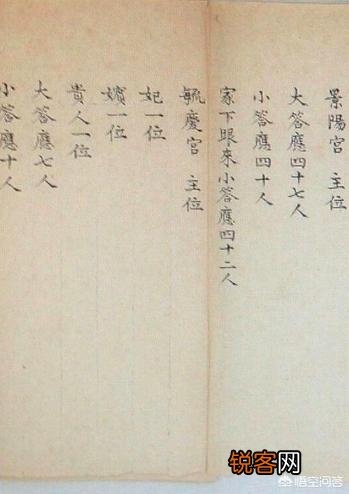 景陽宮 主位
大答應四十七人
小答應四十人
家下眼來小答應四十二人
毓慶宮 主位
妃一位
嬪一位
貴人一位
大答應七人
小答應十人
锐客网
悟空问答